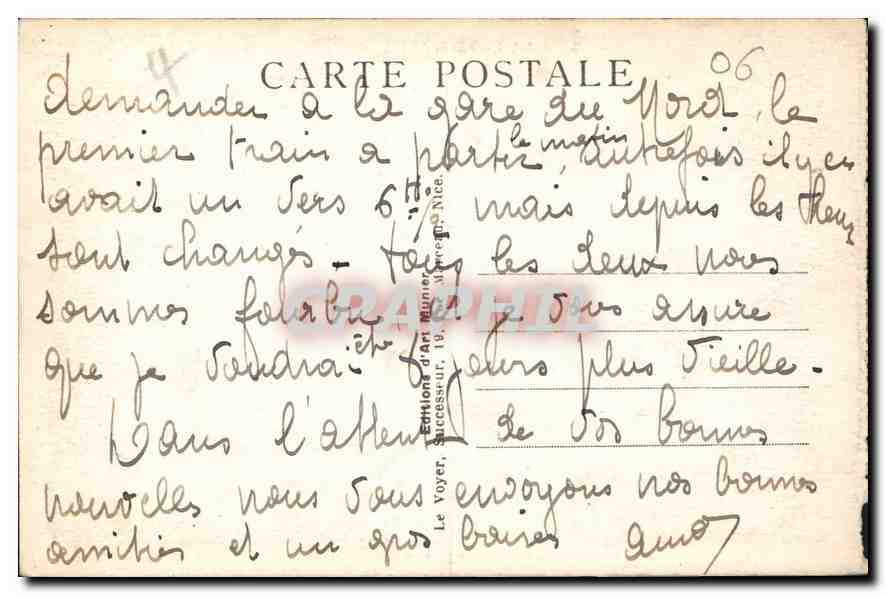 4
06
CARTE POSTALE
demander a la gare du Nord, le
premier train a partir le matin, autrefois il y en
avait un vers 6 H. 1/2 mais depuis les heures
sont changés - tous les deux nous
sommes fourbus et je vous assure
que je voudrai être 8 jours plus vieille -
Dans l'attente de vos bonnes
nouvelles nous vous envoyons nos bonnes
amitiés et un gros baiser
Editions d'Art Munier
Le Voyer, Successeur, 19, Marceau, Nice.
CRAPHIL